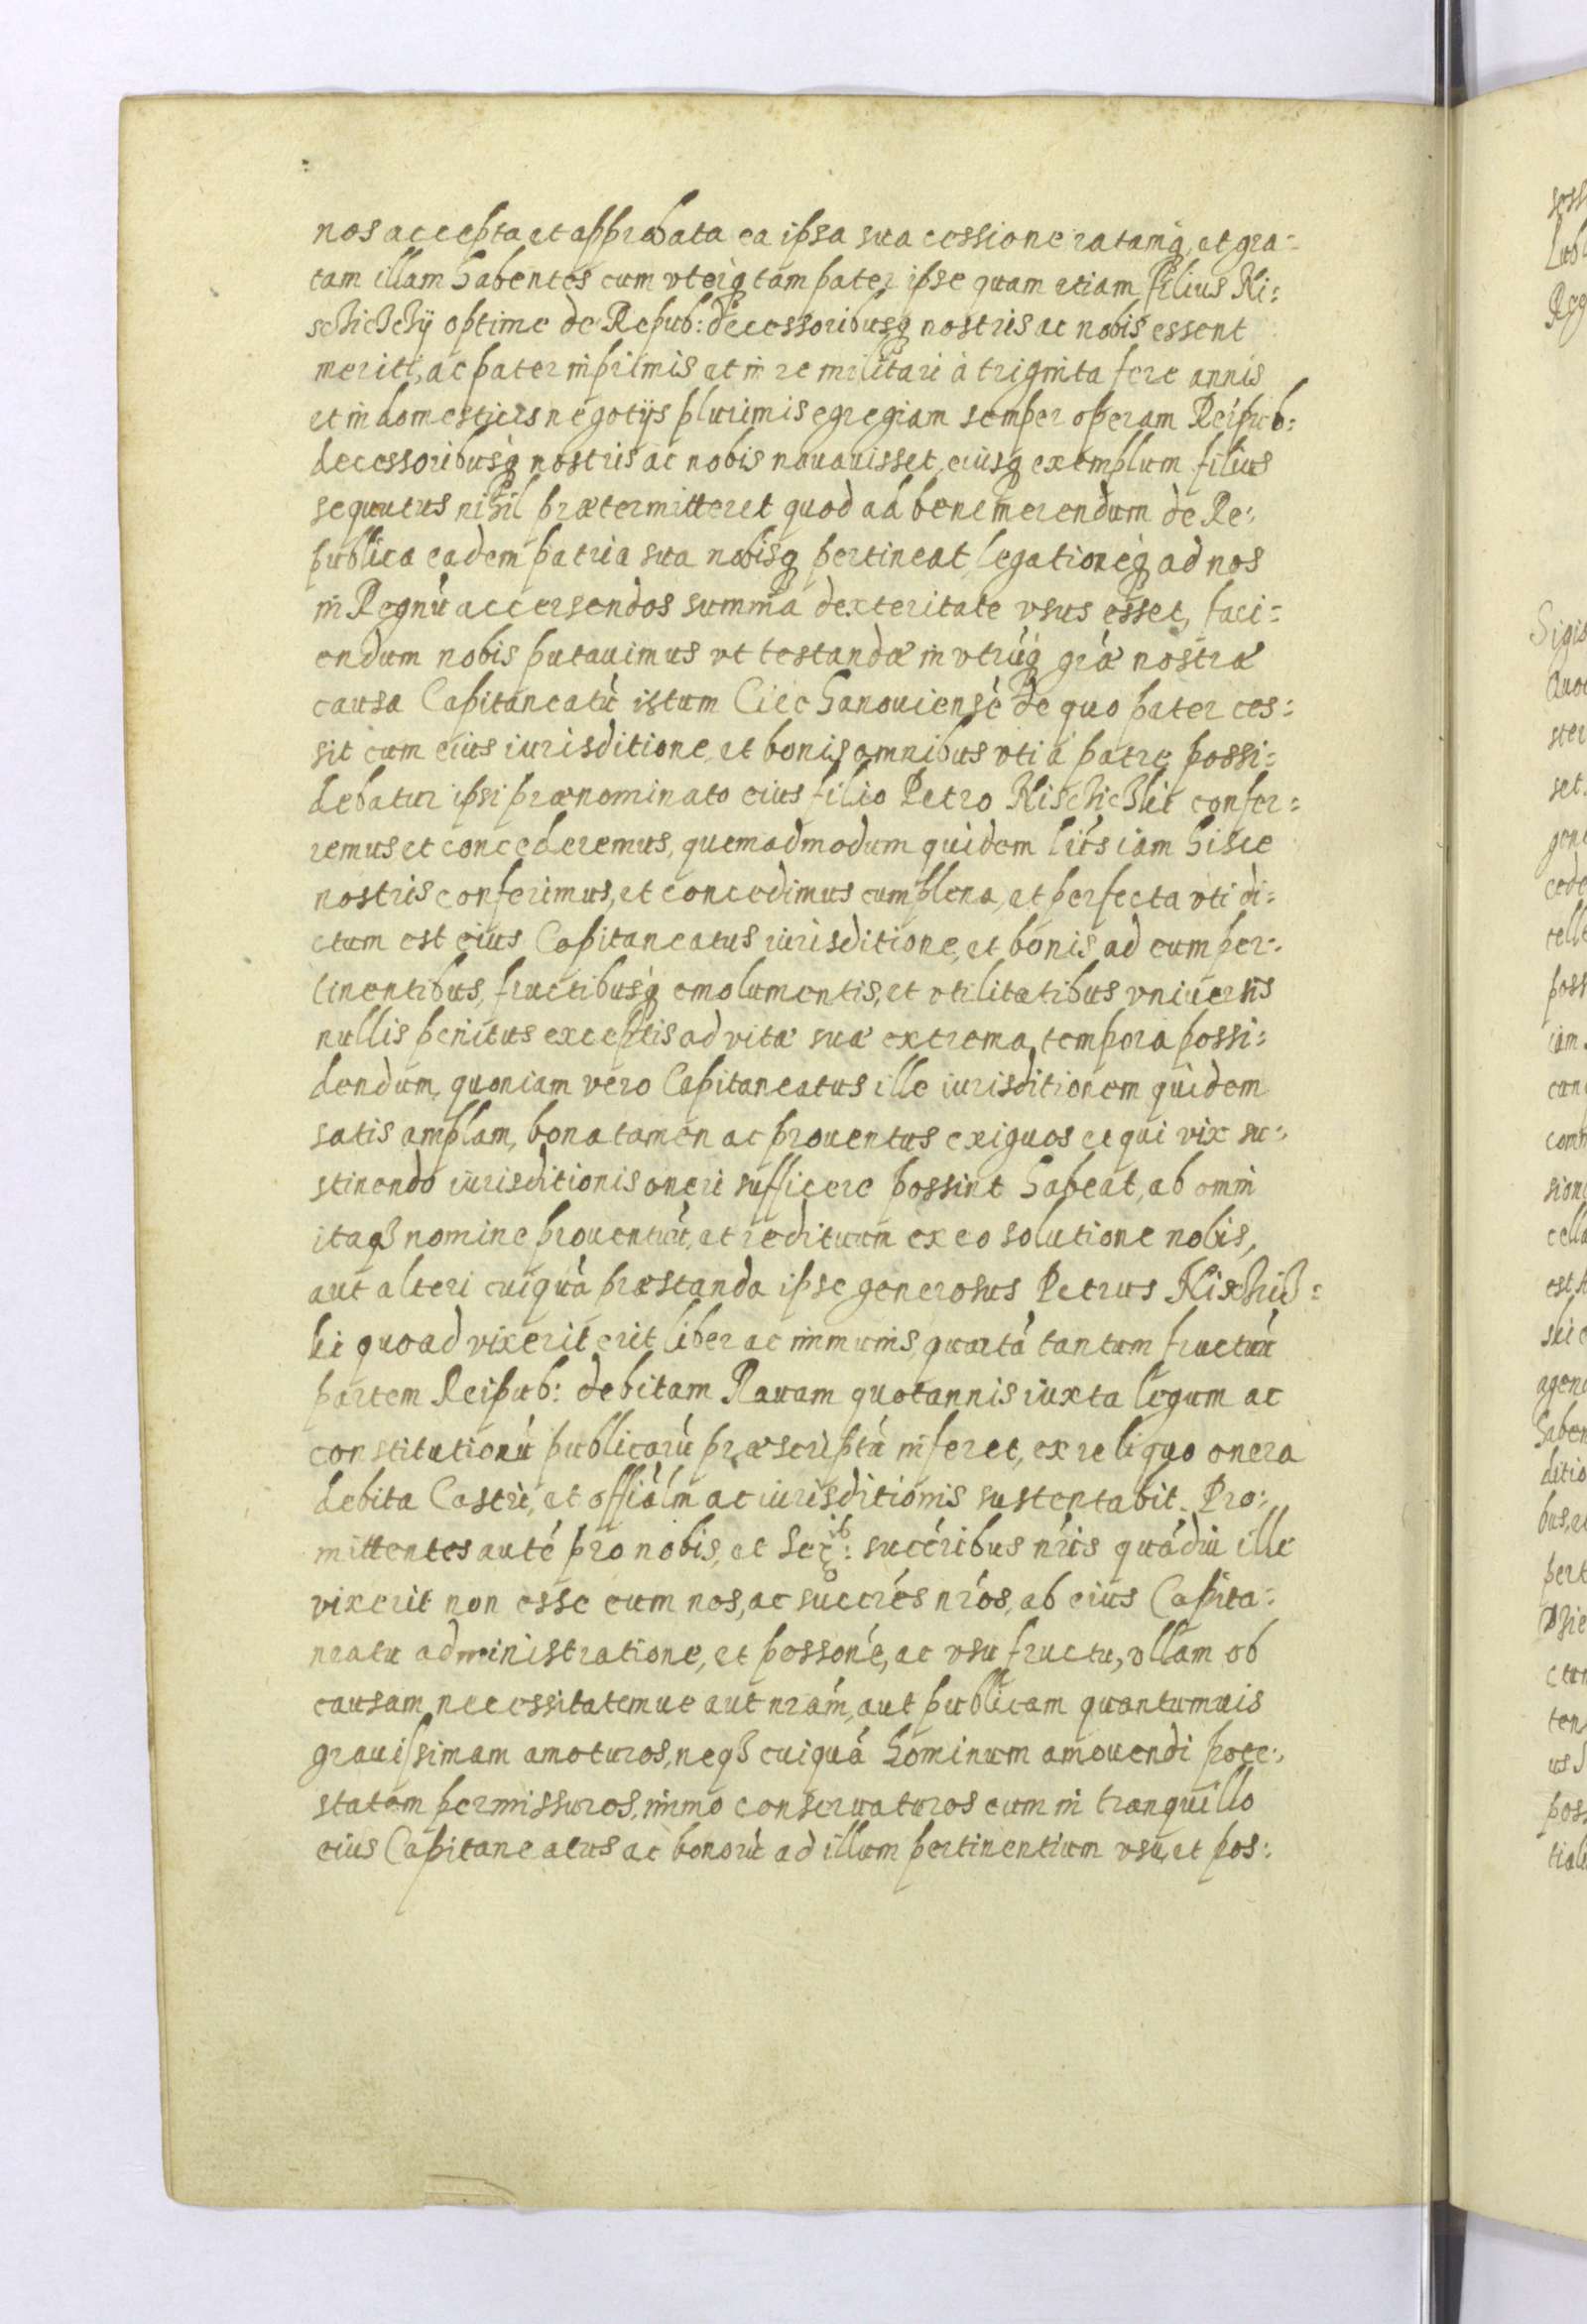 nos accepta et approbata ea ipsa sua cessione ratamq̃, et gra=
tam illam habentes cum vterq̃ tam pater ipse quam etiam filius Ki=
schichchÿ optime de Repub: decessoribusq̃ nostris ac nobis essent
meriti, ac pater inprimis et in re militari à triginta fere annis
et in domesticis negotÿs plurimis egregiam semper operam Reipub:
decessoribusq̃ nostris ac nobis nauauisset, eiusq̃ exemplum filius
sequutus nihil prætermitteret quod ad benemerendum de Re:
publica eadem patria sua nobisq̃ pertineat, legationéq̃ ad nos
in Regnú accersendos summa dexteritate vsus esset, faci=
endum nobis putauimus vt testandæ in vtrúq̃ gráæ nostræ
causa Capitaneatú istum Ciechanouiensé de quo pater ces=
sit cum eius iurisditione, et bonis omnibus vti à patre possi=
debatur ipsi prænominato eius filio Petro Kischichki confer=
remus et concederemus, quemadmodum quidem lris iam hisce
nostris conferimus, et concedimus cum plena, et perfecta vti di=
ctum est eius Capitaneatus iurisditione, et bonis ad eum per=
tinentibus, fructibusq̃ emolumentis, et vtilitatibus vniuersis
nullis penitus exceptis ad vitæ suæ extrema tempora possi=
dendum, quoniam vero Capitaneatus ille iurisditionem quidem
satis amplam, bona tamen ac prouentus exiguos et qui vix su=
stinendo iurisditionis oneri sufficere possint habeat, ab omni
itaqȝ nomine prouentuú, et redituum ex eo solutione nobis,
aut alteri cuiquá præstanda ipse generosus Petrus Kischich=
ki quoad vixerit erit liber ac immunis, quartá tantum fructuú
partem Reipub: debitam Rauam quotannis iuxta legum ac
constitutionú publicarú præscriptú inferet, ex reliquo onera
debita Castri, et offiálm ac iurisditionis sustentabit. Pro:
mittentes auté pro nobis, et Ser:ᵇ succéribus nrís quádiu ille
vixerit non esse eum nos, ac succrés nrós, ab eius Capita=
neatu administratione, et possoné, ac vsu fructu, vllam ob
causam necessitatemue aut nrám, aut publicam quantumuis
grauissimam amoturos, neqȝ cuiquá hominum amouendi pote=
statem permissuros, immo conseruaturos eum in tranquillo
eius Capitaneatus ac bonorú ad illum pertinentium vsu, et pos: